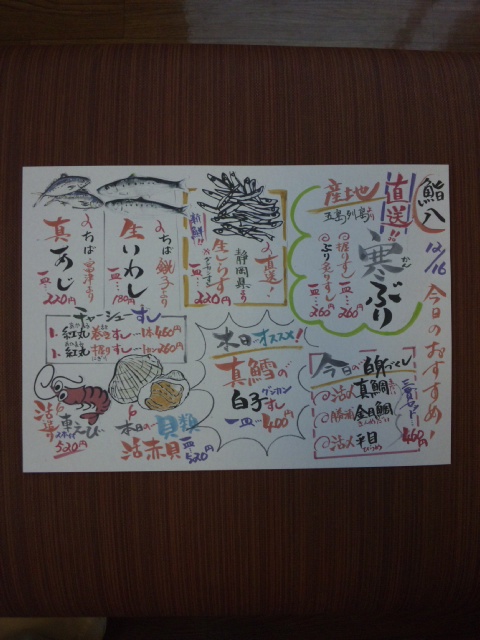 鮨八
12/16
今日のおすすめ!
産地
直送!!
五島列島
寒ぶり
かん
握りずし 一皿…260円
ぶり炙りずし 一皿…260円
直送!
静岡県より
生しらす
グンカンすし
新鮮!!
一皿…220円
ちば銚子より
生いわし
一皿…180円
ちば富津より
真あじ
一皿…220円
チャーシューすし
1. 紅丸巻きすし…一本460円
1. 紅丸握りすし…一カン260円
本日オススメ!
真鱈の
白子グンカンすし
一皿…400円
今日の白身づくし
活〆真鯛
勝浦金目鯛
活〆平目
三貫セット…460円
活车えび
520円
本日の貝類
活赤貝一皿…520円